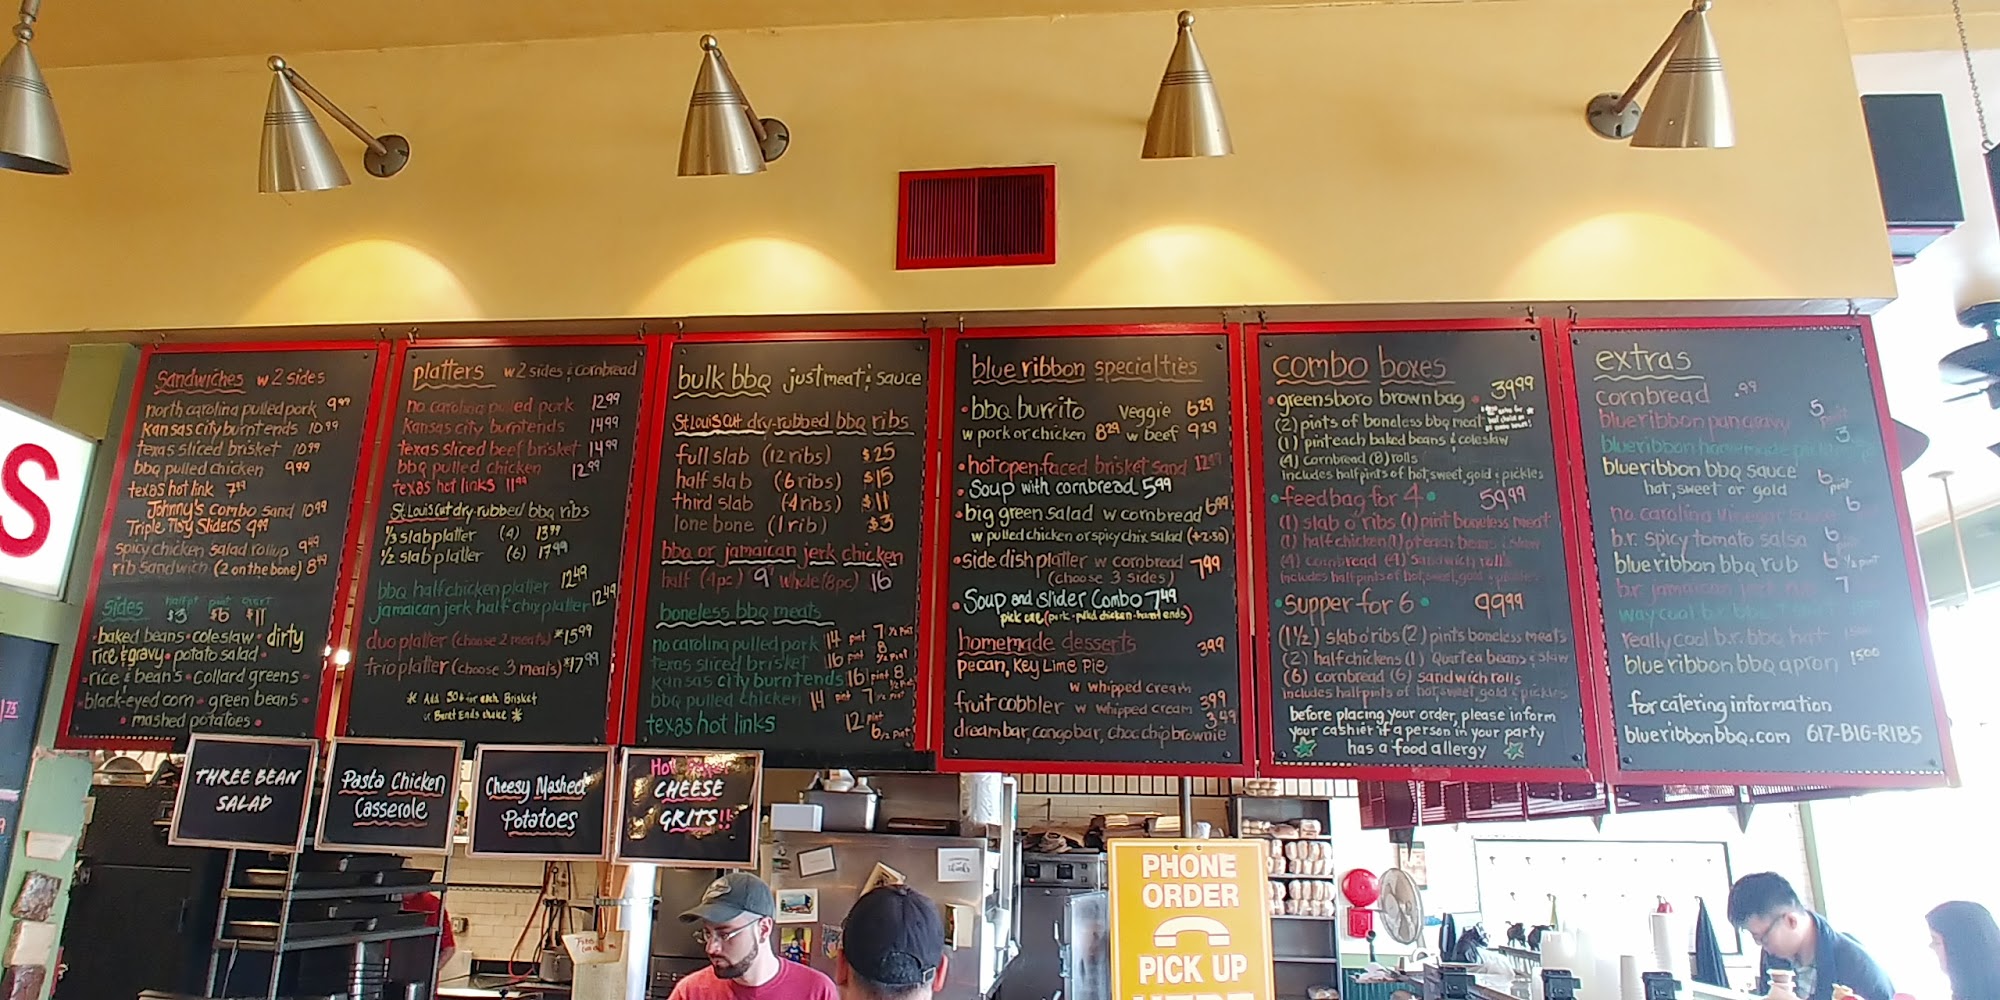 sandwiches w 2 sides
north carolina pulled pork 9.99
kansas city burnt ends 10.99
texas sliced brisket 10.99
bbq pulled chicken 9.99
texas hot link 7.99
Johnny's combo sand 10.99
Triple Tasy Sliders 9.99
spicy chicken salad rollup 9.49
rib sandwich (2 on the bone) 8.49
sides half pt pint quart
$3 $6 $11
• baked beans • coleslaw • dirty
rice & gravy • potato salad •
• rice & beans • collard greens •
• black-eyed corn • green beans •
• mashed potatoes •
platters w 2 sides & cornbread
no carolina pulled pork 12.99
kansas city burnt ends 14.99
texas sliced beef brisket 14.99
bbq pulled chicken 12.99
texas hot links 11.99
St. Louis cut dry-rubbed bbq ribs
1/3 slab platter (4) 13.99
1/2 slab platter (6) 17.99
bbq half chicken platter 12.49
jamaican jerk half chix platter 12.49
duo platter (choose 2 meats) *15.99
trio platter (choose 3 meats) *17.99
* Add .50¢ for each Brisket
or Burnt Ends choice *
bulk bbq just meat & sauce
St. Louis cut dry-rubbed bbq ribs
full slab (12 ribs) $25
half slab (6 ribs) $15
third slab (4 ribs) $11
lone bone (1 rib) $3
bbq or jamaican jerk chicken
half (4pc) 9 whole (8pc) 16
boneless bbq meats
no carolina pulled pork 14 pint 7 1/2 pint
texas sliced brisket 16 pint 8 1/2 pint
kansas city burnt ends 16 pint 8 1/2 pint
bbq pulled chicken 14 pint 7 1/2 pint
texas hot links 12 pint 6 1/2 pint
blue ribbon specialties
• bbq burrito Veggie 6.29
w pork or chicken 8.29 w beef 9.29
• hot open-faced brisket sand 12.99
• Soup with cornbread 5.99
• big green salad w cornbread 6.99
w pulled chicken or spicy chix salad (+2.50)
• side dish platter w cornbread 7.99
(choose 3 sides)
• Soup and slider Combo 7.49
pick one (pork - pulled chicken - burnt ends)
homemade desserts 3.99
pecan, Key Lime Pie
w whipped cream
fruit cobbler w whipped cream 3.99
dream bar, congo bar, choc chip brownie 3.49
combo boxes
• greensboro brown bag • 39.99
(2) pints of boneless bbq meat
(1) pint each baked beans & coleslaw
(4) cornbread (8) rolls
includes half pints of hot, sweet, gold & pickles
• feedbag for 4 • 59.99
(1) slab o' ribs (1) pint boneless meat
(1) half chicken (1) pt each beans & slaw
(4) cornbread (4) sandwich rolls
includes half pints of hot, sweet, gold & pickles
• supper for 6 • 99.99
(1 1/2) slab o' ribs (2) pints boneless meats
(2) half chickens (1) Quart ea beans & slaw
(6) cornbread (6) sandwich rolls
includes half pints of hot, sweet, gold & pickles
before placing your order, please inform
your cashier if a person in your party
has a food allergy
extras
cornbread .99
blue ribbon pan gravy 5 pint
blue ribbon homemade pickles 3
blue ribbon bbq sauce 6 pint
hot, sweet or gold
no. carolina vinegar sauce 6
b.r. spicy tomato salsa 6
blue ribbon bbq rub 6 1/2 pint
b.r. jamaican jerk 7
way cool b.r.
really cool b.r. bbq hat 15.00
blue ribbon bbq apron 15.00
for catering information
blueribbonbbq.com 617-BIG-RIBS
THREE BEAN
SALAD
Pasta Chicken
Casserole
Cheesy Mashed
Potatoes
Hot Pepper
CHEESE
GRITS!!
S
PHONE
ORDER
PICK UP
HERE